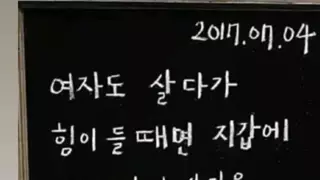 2017.07.04
여자도 살다가
힘이 들 때면 지갑에